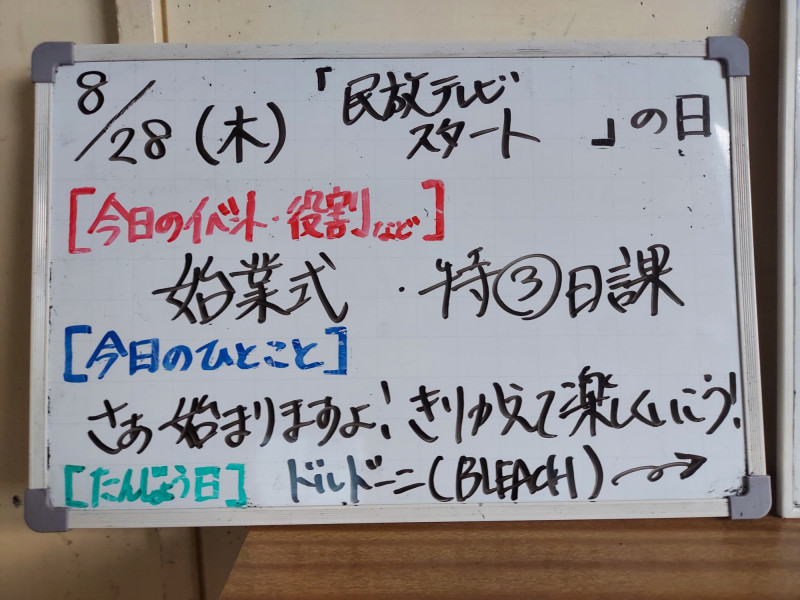 8/28(木) 「民放テレビスタート」の日
[今日のイベント・役割など]
始業式 ・特③日課
[今日のひとこと]
さぁ始まりますよ!きりかえて楽しくいこう!
[たんじょう日] ドルドーニ(BLEACH)